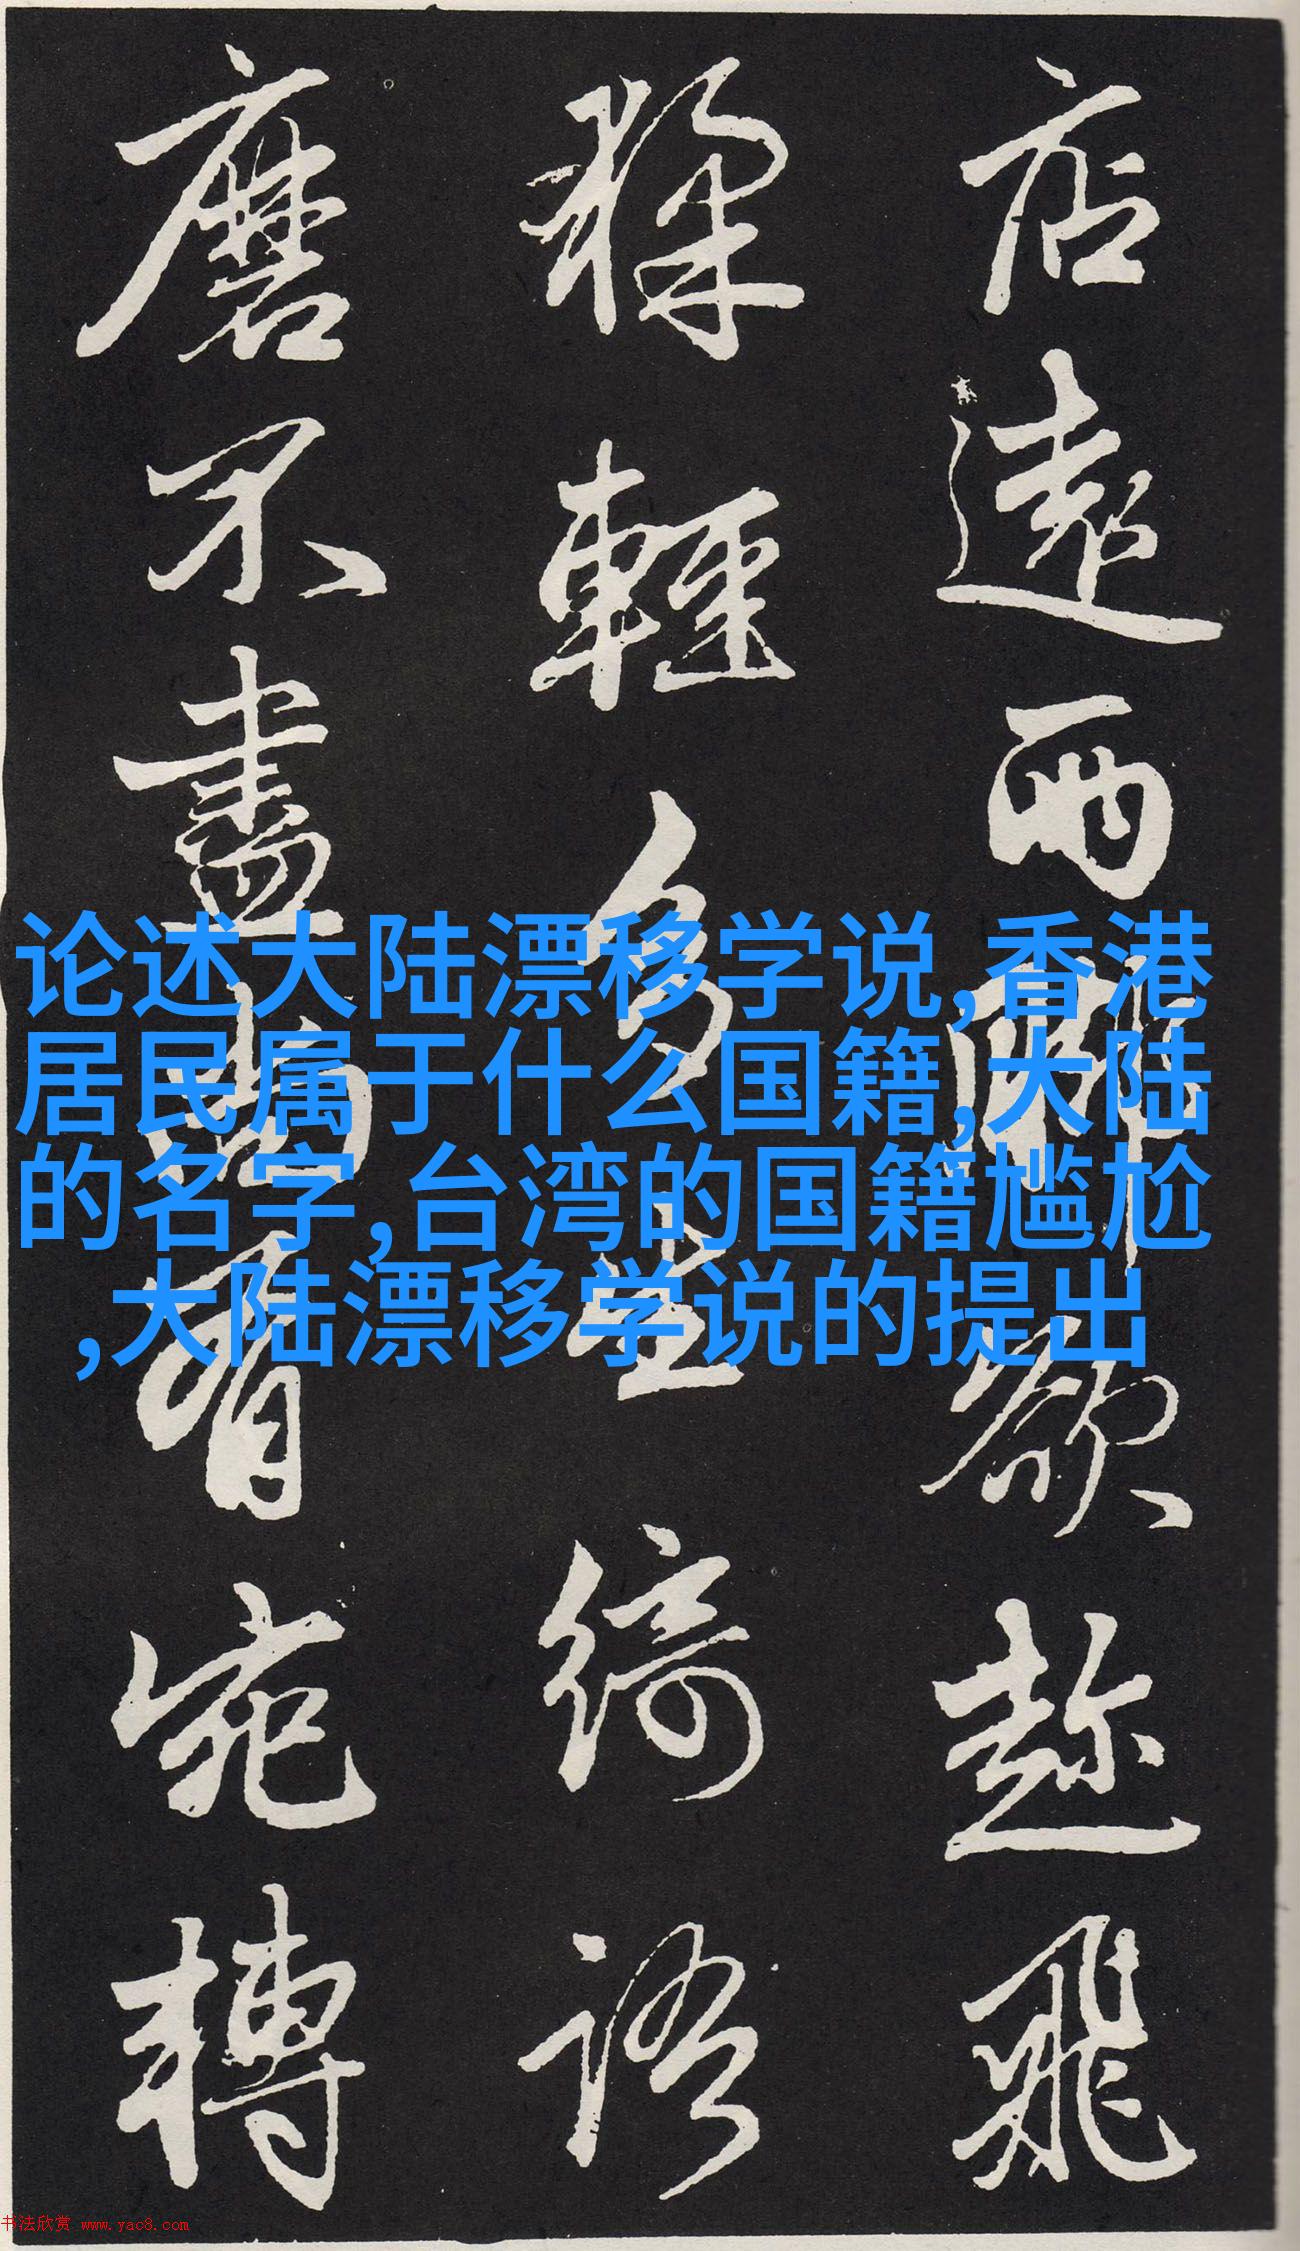 店遠雨聯欲趁飛
猱輕身坐綺語
磨不盡為有宛轉
论述大陆漂移学说,香港
居民属于什么国籍,大陆
的名字,台湾的国籍尴尬
,大陆漂移学说的提出
书法欣赏 www.yac8.com